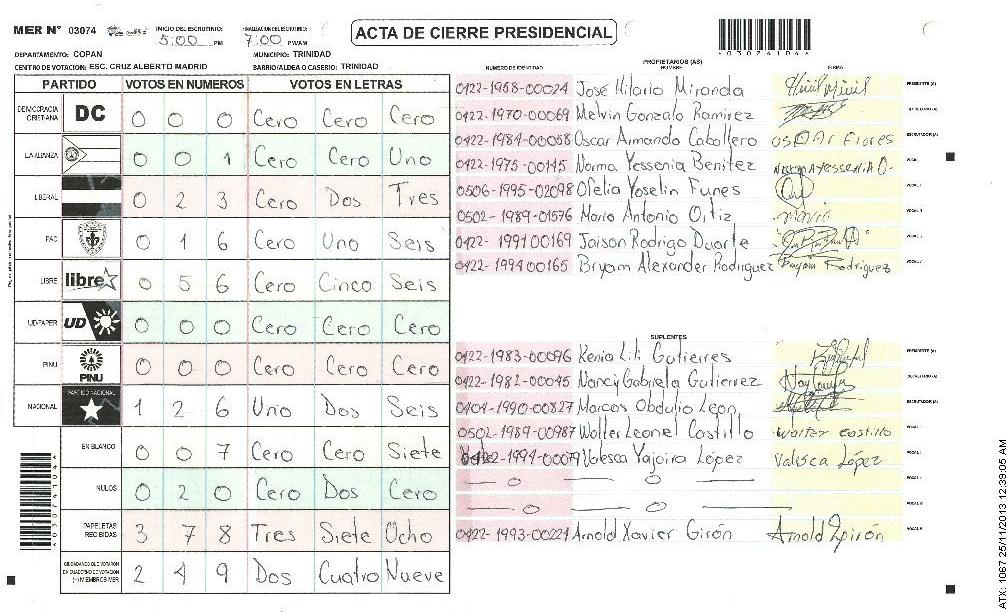 MER N° 03074
INICIO DEL ESCRUTINIO: 5:00 PM
FINALIZACION DEL ESCRUTINIO: 7:00 PM/AM
ACTA DE CIERRE PRESIDENCIAL
*03074104*
DEPARTAMENTO: COPAN
MUNICIPIO: TRINIDAD
CENTRO DE VOTACION: ESC. CRUZ ALBERTO MADRID
BARRIO/ALDEA O CASERIO: TRINIDAD
PARTIDO VOTOS EN NUMEROS VOTOS EN LETRAS
DEMOCRACIA CRISTIANA DC 0 0 0 Cero Cero Cero
LA ALIANZA 0 0 1 Cero Cero Uno
LIBERAL 0 2 3 Cero Dos Tres
PAC 0 1 6 Cero Uno Seis
LIBRE libre 0 5 6 Cero Cinco Seis
UD-FAPER UD 0 0 0 Cero Cero Cero
PINU PINU 0 0 0 Cero Cero Cero
NACIONAL PARTIDO NACIONAL 1 2 6 Uno Dos Seis
EN BLANCO 0 0 7 Cero Cero Siete
NULOS 0 2 0 Cero Dos Cero
PAPELETAS RECIBIDAS 3 7 8 Tres Siete Ocho
CIUDADANOS QUE VOTARON EN CUADERNO DE VOTACION (+) MIEMBROS MER 2 4 9 Dos Cuatro Nueve
*03074104*
PROPIETARIOS (AS)
NUMERO DE IDENTIDAD NOMBRE FIRMA
0422-1968-00024 José Hilario Miranda PRESIDENTE (A)
0422-1970-00069 Melvin Gonzalo Ramirez SECRETARIO (A)
0422-1984-00058 Oscar Armando Caballero OSCAr Flores ESCRUTADOR (A)
0422-1975-00145 Norma Yessenia Benitez VOCAL I
0506-1995-02098 Ofelia Yoselin Funes VOCAL II
0502-1989-01576 Mario Antonio Ortiz Mario
0422-1991 00169 Jaison Rodrigo Duarte
0422-1994 00165 Bryam Alexander Rodriguez Bryam Rodriguez
SUPLENTES
0422-1983-00096 Kenia Lili Gutierres PRESIDENTE (A)
0422-1982-00045 Narcy Gabriela Gutierrez SECRETARIO (A)
0404-1990-00827 Marcos Obdulio Leon ESCRUTADOR (A)
0502-1989-00987 Walter Leonel Castillo Walter Castillo
1994-00079 Valesca Yajaira López Valesca López
0422-1993-00221 Arnold Xavier Girón Arnold Girón
ATX: 1067 25/11/2013 12:39:05 AM